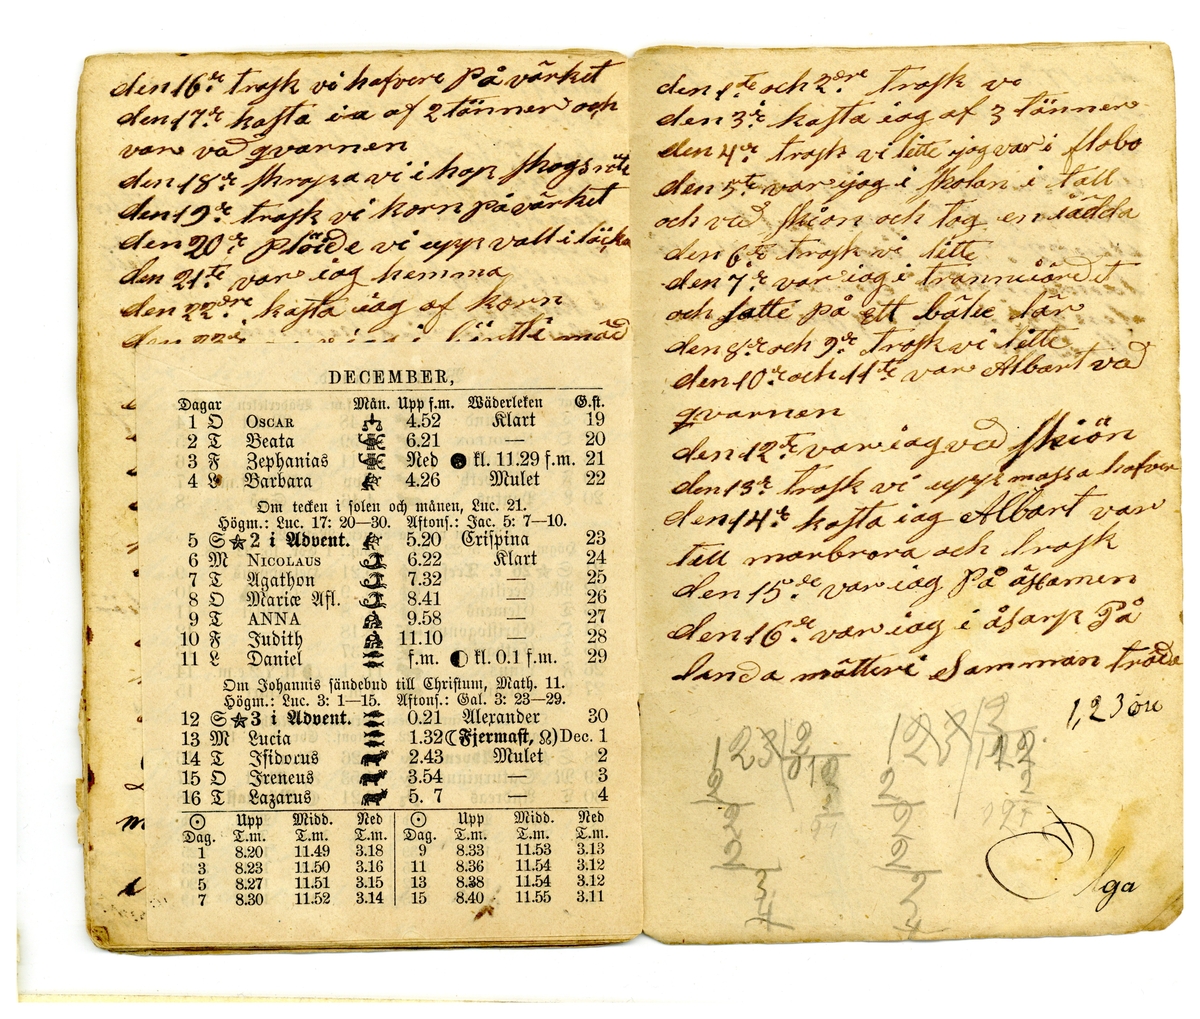 den 16de trosk vi hafvere På värket
den 17de kasta ia af 2 tönner och
var vad qvarnen
den 18de skrapa vi i hop skogs
den 19de trosk vi korn på värket
den 20de plöide vi upp vall i
den 21te var iag hemma
den 22dre kasta iag af korn
DECEMBER,
Dagar Mån. Upp f.m. Wäderleken G.st.
1 O OSCAR 4.52 Klart 19
2 T Beata 6.21 — 20
3 F Zephanias Ned ● kl. 11.29 f.m. 21
4 L Barbara 4.26 Mulet 22
Om tecken i solen och månen, Luc. 21.
Högm.: Luc. 17: 20—30. Aftons.: Jac. 5: 7—10.
5 S ☆ 2 i Advent. 5.20 Crispina 23
6 M NICOLAUS 6.22 Klart 24
7 T Agathon 7.32 — 25
8 O Mariæ Afl. 8.41 — 26
9 T ANNA 9.58 — 27
10 F Judith 11.10 — 28
11 L Daniel f.m. ◐ kl. 0.1 f.m. 29
Om Johannis sändebud till Christum, Math. 11.
Högm.: Luc. 3: 1—15. Aftons.: Gal. 3: 23—29.
12 S ☆ 3 i Advent. 0.21 Alexander 30
13 M Lucia 1.32 ☾Fjermast, ☊) Dec. 1
14 T Isidorus 2.43 Mulet 2
15 O Ireneus 3.54 — 3
16 T Lazarus 5. 7 — 4
☉ Upp Midd. Ned ☉ Upp Midd. Ned
Dag. T.m. T.m. T.m. Dag. T.m. T.m. T.m.
1 8.20 11.49 3.18 9 8.33 11.53 3.13
3 8.23 11.50 3.16 11 8.36 11.54 3.12
5 8.27 11.51 3.15 13 8.38 11.54 3.12
7 8.30 11.52 3.14 15 8.40 11.55 3.11
den 1te och 2dre trosk vi
den 3de kasta iag af 3 tönner
den 4de trosk vi litte jag var i flobo
den 5te var jag i skolan i tall
och vad skiön och tog en iädda
den 6te trosk vi litte
den 7de var iag i
och satte på ett bälee lår
den 8de och 9de trosk vi litte
den 10de och 11te var Albart vad
qvarnen
den 12te var iag vad skiön
den 13de trosk vi upp massa hafver
den 14de kasta iag Albart var
till morbrora och trosk
den 15de var iag På åssamen
den 16de var iag i åsarp På
landa mötteri Samman
1,23 öre
Olga